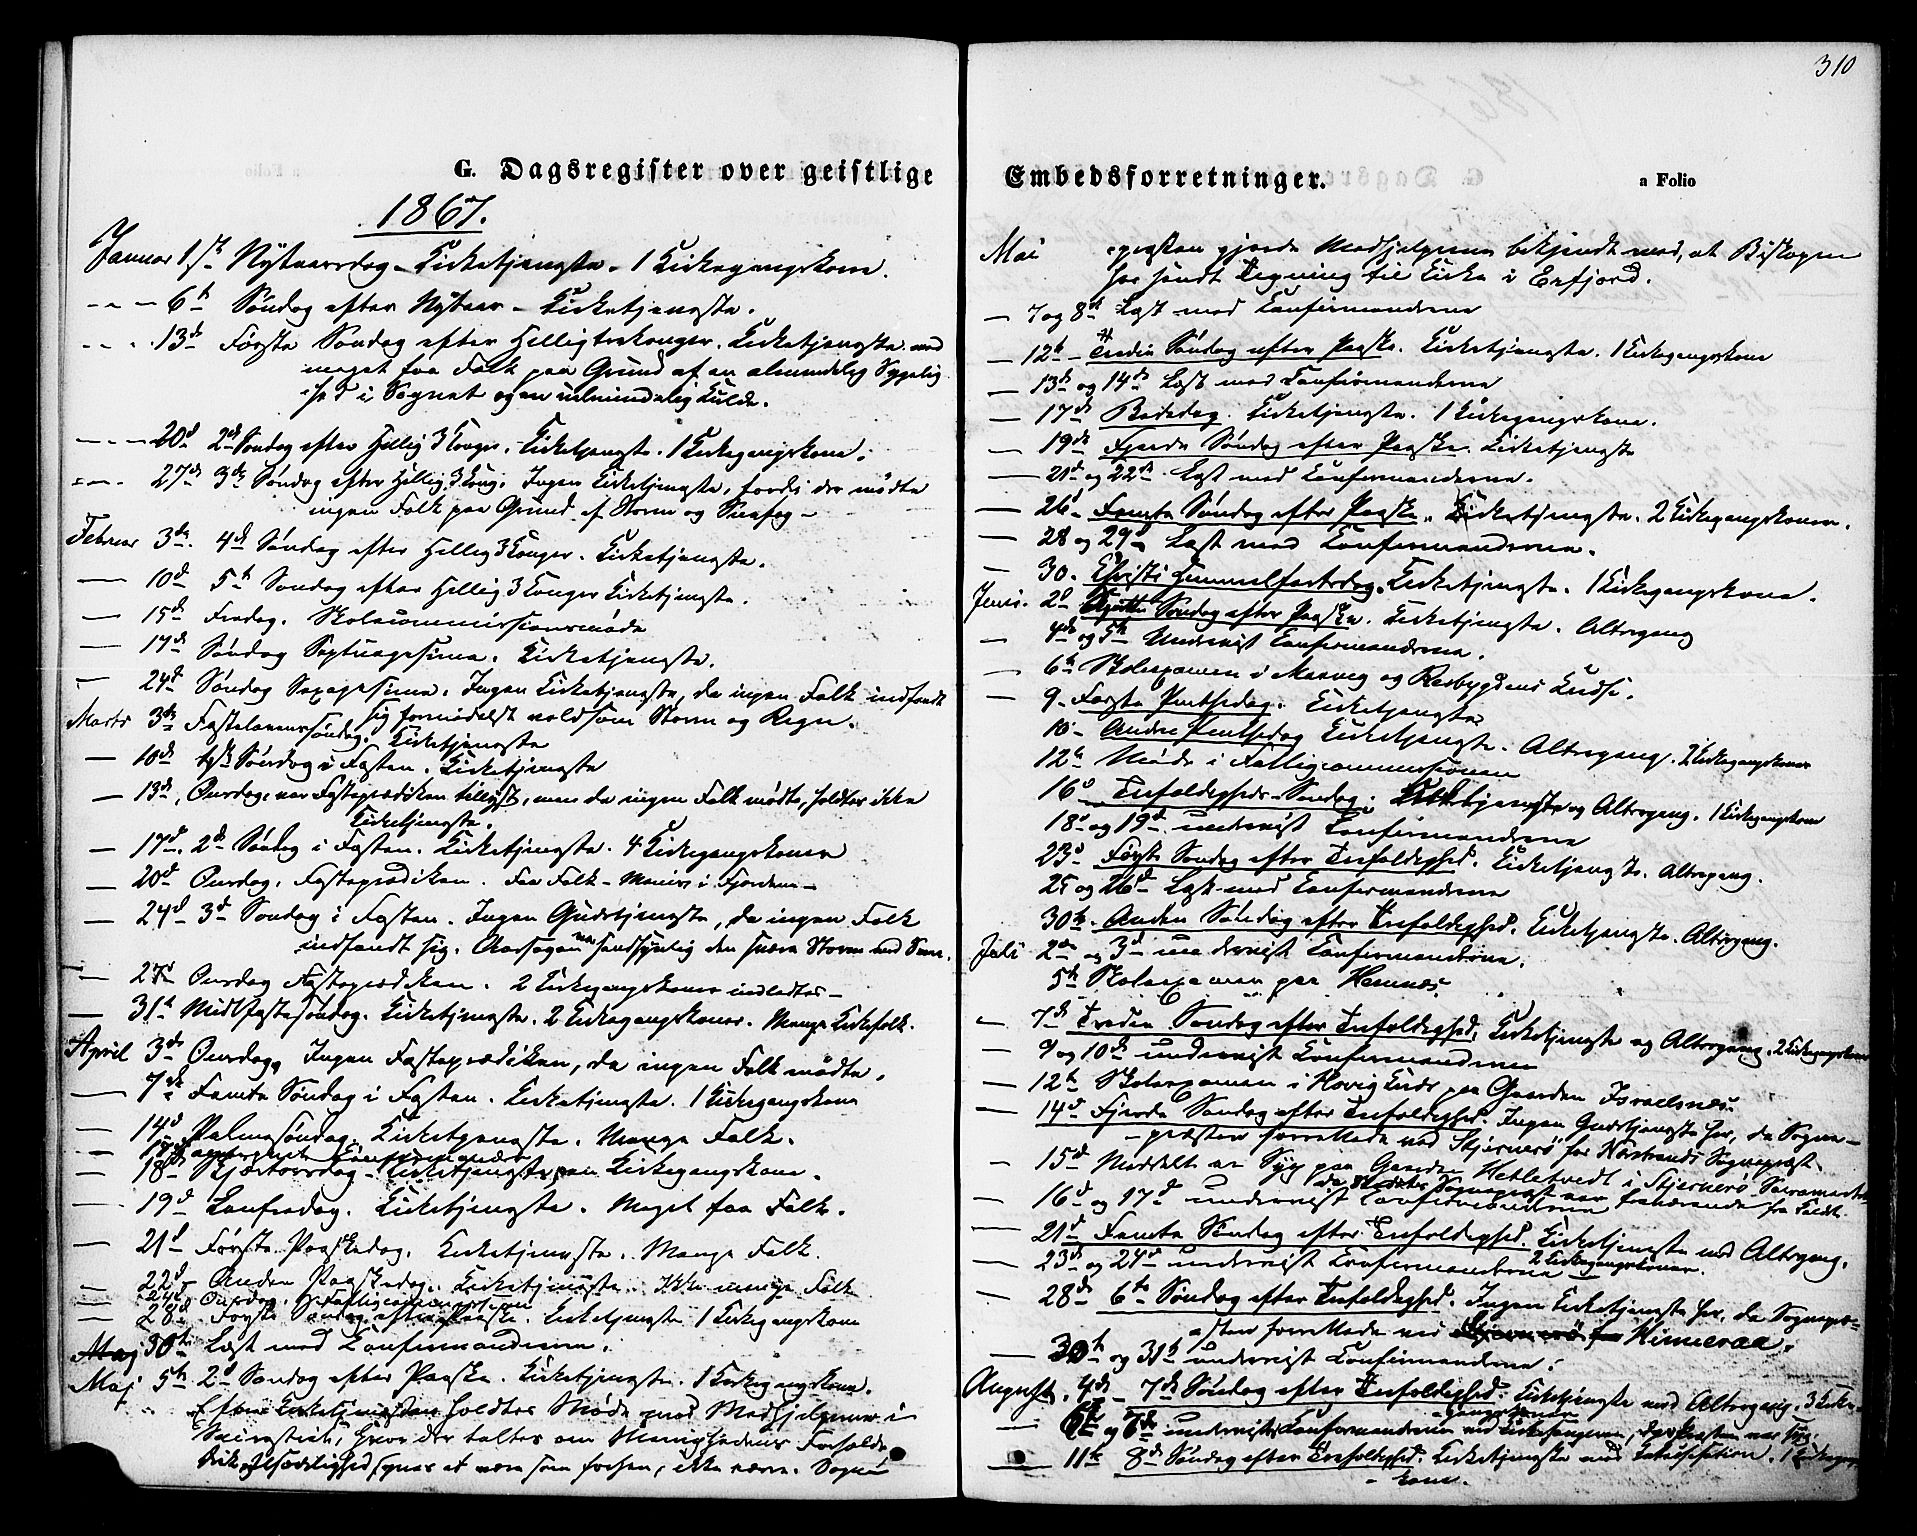 G. Dagsregister over geistlige
1867.
Januar 1ste Nytaarsdag – Kirketjeneste – 1 Kirkegangskone.
– – – 6te Søndag efter Nytaar – Kirketjeneste.
– – – 13de Første Søndag efter Helligtrekonger. Kirketjeneste med
meget faa Folk paa Grund af en almindelig Sygelig-
hed i Sognet og en ualmindelig Kulde.
– – – 20de 2den Søndag efter Hellig 3 Konger. Kirketjeneste. 1 Kirkegangskone.
– – 27de 3die Søndag efter Hellig 3 Kong. Ingen Kirketjeneste, fordi der mødte
ingen Folk paa Grund af Storm og Snefog –
Februar 3die 4de Søndag efter Hellig 3 Konger. Kirketjeneste.
— 10de 5te Søndag efter Hellig 3 Konger Kirketjeneste.
— 15de Fredag. Skolecommissionsmøde
— 17de Søndag Septuagesima. Kirketjeneste.
— 24de Søndag Sexagesima. Ingen Kirketjeneste, da ingen Folk indfandt
sig formedelst voldsom Storm og Regn.
Marts 3die Fastelavnssøndag. Kirketjeneste
— 10de 1ste Søndag i Fasten. Kirketjeneste
— 13de, Onsdag, var Fasteprædiken tillyst, men da ingen Folk mødte, holdtes ikke
Kirketjeneste.
— 17de. 2den Søndag i Fasten. Kirketjeneste. 4 Kirkegangskoner
— 20de Onsdag. Fasteprædiken. Faa Folk – i Fjordene –
— 24de 3die Søndag i Fasten. Ingen Gudstjeneste, da ingen Folk
indfandt sig. Aarsagen var sandsynlig den svære Storm med Snee.
— 27de Onsdag Fasteprædiken. 2 Kirkegangskoner indledtes –
— 31te Midtfastesøndag. Kirketjeneste. 2 Kirkegangskoner. Mange Kirkefolk.
April 3die Onsdag, Ingen Fasteprædiken, da ingen Folk mødte.
— 7de Femte Søndag i Fasten. Kirketjeneste. 1 Kirkegangskone
— 14de Palmesøndag. Kirketjeneste. Mange Folk.
— Confirmander
— 18de Skjærtorsdag – Kirketjeneste, en Kirkegangskone.
— 19de Lanfredag. Kirketjeneste. Meget faa Folk.
— 21de Første Paaskedag. Kirketjeneste. Mange Folk.
— 22de Anden Paaskedag. Kirketjeneste. Ikke mange Folk
— 24de Onsdag. Fattigcommission
— 28de Første Søndag efter Paaske. Kirketjeneste 1 Kirkegangskone
Maj 30te Læst med Confirmanderne.
Maj 5te 2den Søndag efter Paaske. Kirketjeneste. 1 Kirkegangskone.
Efter Kirketjenesten holdtes Møde med Medhjelperne i
Sacristiet, hvor der taltes om Menighedens Forholde.
Drikfældighed synes at være som forhen, ikke værre. Sogne-
310
Embedsforretninger.
a Folio
Mai -præsten gjorde Medhjelperne bekjendt med, at Biskopen
har sendt Tegning til Kirke i Erfjord.
— 7 og 8de Læst med Confirmanderne
— 12te – Tredie Søndag efter Paaske. Kirketjeneste. 1 Kirkegangskone
— 13de og 14de Læst med Confirmanderne
— 17de Bededag. Kirketjeneste. 1 Kirkegangskone.
— 19de Fjerde Søndag efter Paaske. Kirketjeneste
— 21de og 22de Læst med Confirmanderne.
— 26de Femte Søndag efter Paaske. Kirketjeneste. 2 Kirkegangskoner.
— 28 og 29de Læst med Confirmanderne.
— 30. Christi Himmelfartsdag. Kirketjeneste. 1 Kirkegangskone.
Juni. 2den Sjette Søndag efter Paaske. Kirketjeneste. Altergang
— 4de og 5te Underviist Confirmanderne.
— 6te Skoleexamen i Marvig og Røsbygdens Kreds.
— 9. Første Pintsedag. Kirketjeneste
10. – Anden Pintsedag Kirketjeneste. Altergang. 2 Kirkegangskoner
12te Møde i Fattigcommissionen
16de Trefoldigheds-Søndag. Kirketjeneste og Altergang. 1 Kirkegangskone
18de og 19de underviist Confirmanderne
23de Første Søndag efter Trefoldighed. Kirketjeneste. Altergang.
25 og 26de Læst med Confirmanderne
30te. Anden Søndag efter Trefoldighed. Kirketjeneste. Altergang.
Juli 2den og 3die underviist Confirmanderne.
5te Skoleexamen paa Hemnes.
— 7de Tredie Søndag efter Trefoldighed. Kirketjeneste og Altergang. 2 Kirkegangskoner
— 9 og 10de underviist Confirmanderne
— 12te Skoleexamen i Hovig Kreds paa Gaarden Israelsnes.
— 14de Fjerde Søndag efter Trefoldighed. Ingen Gudstjeneste her, da Sogne-
-præsten forrettede ved Stjernerø for Nerstrands Sognepræst.
— 15de Meddelt en Syg paa Gaarden Hetletvedt i Stjernerø Sacramentet,
da Stedets Sognepræst var fraværende fra Kaldet.
— 16de og 17de underviist Confirmanderne
— 21de Femte Søndag efter Trefoldighed. Kirketjeneste med Altergang.
— 23de og 24de underviist Confirmanderne 2 Kirkegangskoner.
— 28de 6te Søndag efter Trefoldighed. Ingen Kirketjeneste her, da Sognepræ-
-sten forrettede ved Hinneraa.
— 30te og 31te underviist Confirmanderne.
August. 4de – 7de Søndag efter Trefoldighed. Kirketjeneste med Altergang. 3 Kirke-
-gangskoner
— 6te og 7de underviistes Confirmanderne ved Kirkesangeren, da Præsten var syg.
— 11te 8de Søndag efter Trefoldighed. Kirketjeneste med Catechisation. 1 Kirkegangs-
-kone.